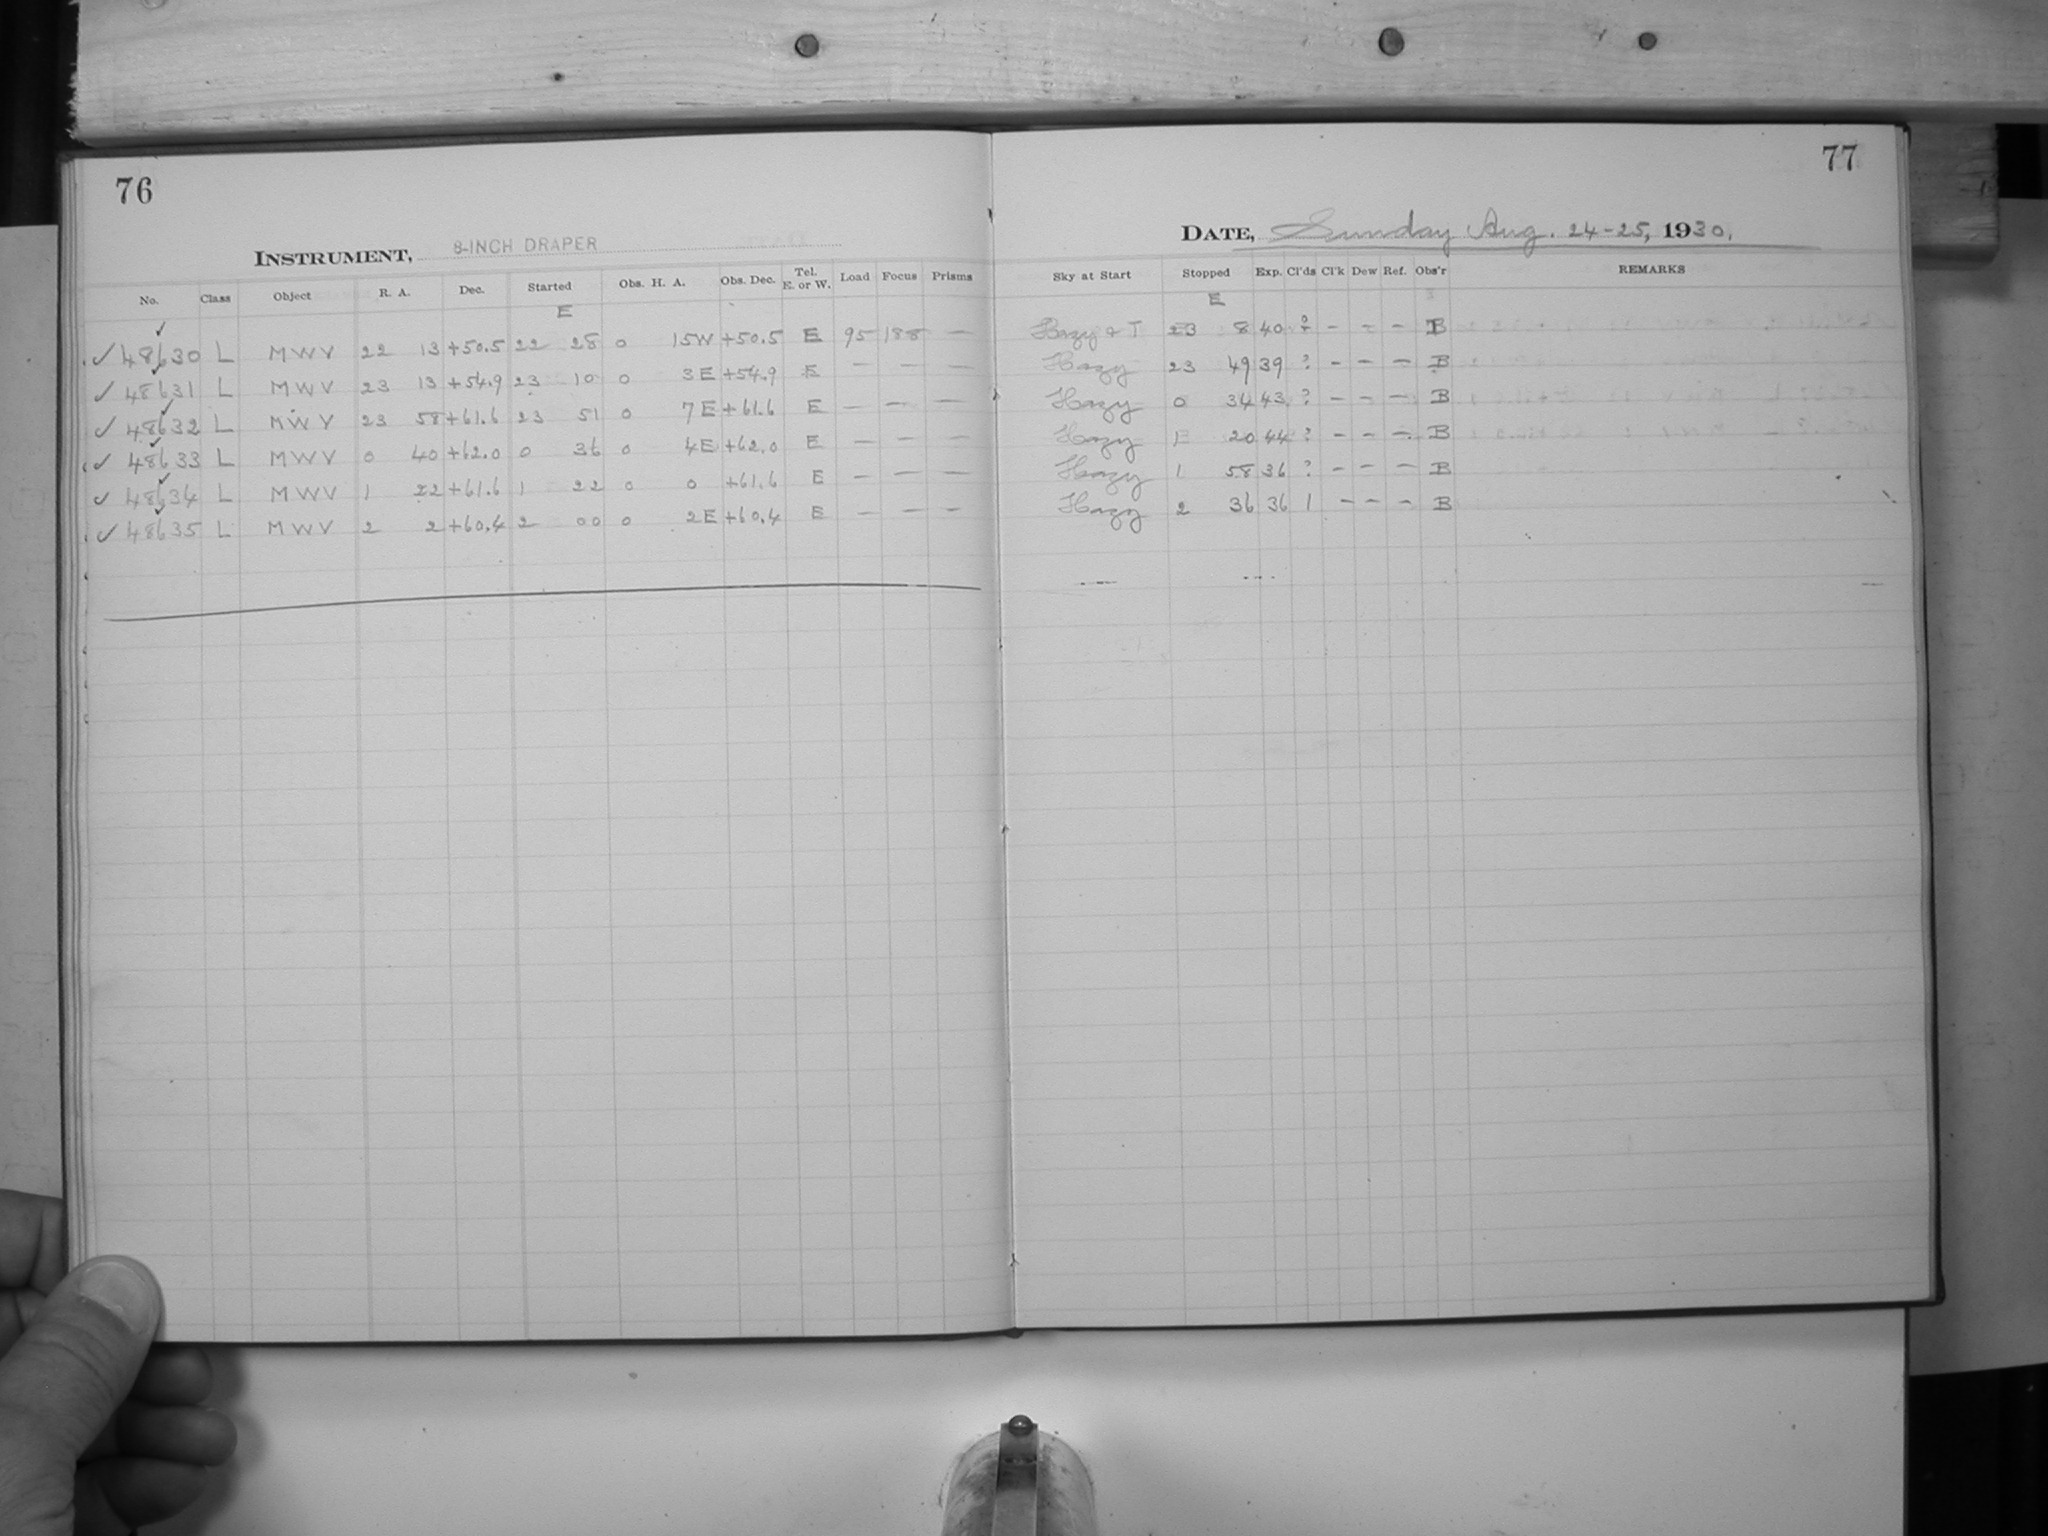 76
INSTRUMENT, 8-INCH DRAPER
No. Class Object R. A. Dec. Started Obs. H. A. Obs. Dec. Tel. E. or W. Load Focus Prisms
E
✓ 48630 L MWV 22 13 +50.5 22 28 0 15W +50.5 E 95 188 —
✓ 48631 L MWV 23 13 +54.9 23 10 0 3E +54.9 E — — —
✓ 48632 L MWV 23 58 +61.6 23 51 0 7E +61.6 E — — —
✓ 48633 L MWV 0 40 +62.0 0 36 0 4E +62.0 E — — —
✓ 48634 L MWV 1 22 +61.6 1 22 0 0 +61.6 E — — —
✓ 48635 L MWV 2 2 +60.4 2 00 0 2E +60.4 E — — —
77
DATE, Sunday Aug. 24-25, 1930.
Sky at Start Stopped Exp. Cl'ds Cl'k Dew Ref. Obs'r REMARKS
E
Hazy & T 23 8 40 ? - - - B
Hazy 23 49 39 ? - - - B
Hazy 0 34 43 ? - - - B
Hazy 1 20 44 ? - - - B
Hazy 1 58 36 ? - - - B
Hazy 2 36 36 1 - - - B